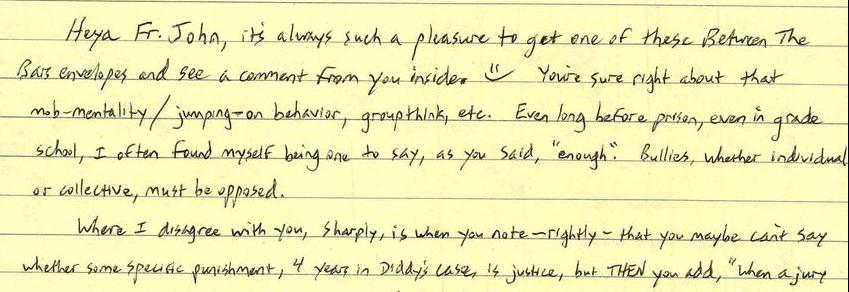 Heya Fr. John, it's always such a pleasure to get one of these Between The
Bars envelopes and see a comment from you inside. You're sure right about that
mob-mentality / jumping-on behavior, groupthink, etc. Even long before prison, even in grade
school, I often found myself being one to say, as you said, "enough". Bullies, whether individual
or collective, must be opposed.
Where I disagree with you, sharply, is when you note - rightly - that you maybe can't say
whether some specific punishment, 4 years in Diddy's case, is justice, but THEN you add, "When a jury